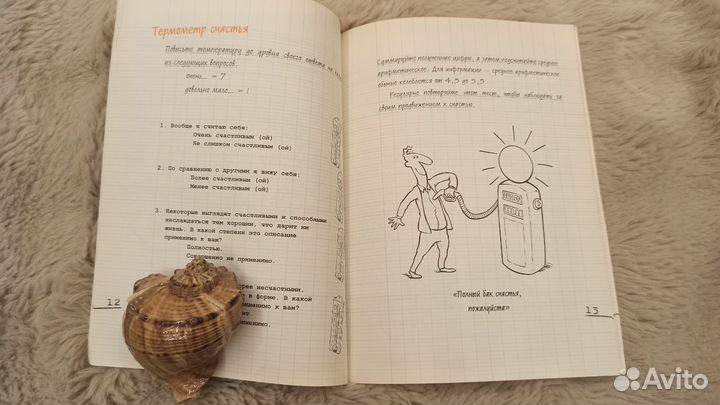 Термометр счастья
Повысьте температуру до уровня своего ответа на
из следующих вопросов:
очень... = 7
довольно мало... = 1
1. Вообще я считаю себя:
Очень счастливым (ой)
Не слишком счастливым (ой)
2. По сравнению с другими я вижу себя:
Более счастливым (ой)
Менее счастливым (ой)
3. Некоторые выглядят счастливыми и способными
наслаждаться тем хорошим, что дарит им
жизнь. В какой степени это описание
применимо к вам?
Полностью.
Совершенно не применимо.
несчастными,
в форме. В какой
применимо к вам?
применимо.
12
Суммируйте полученные цифры, а затем подсчитайте среднее
арифметическое. Для информации — среднее арифметическое
обычно колеблется от 4,5 до 5,5.
Регулярно повторяйте этот тест, чтобы наблюдать за
своим продвижением к счастью.
«Полный бак счастья,
пожалуйста»
13
Avito